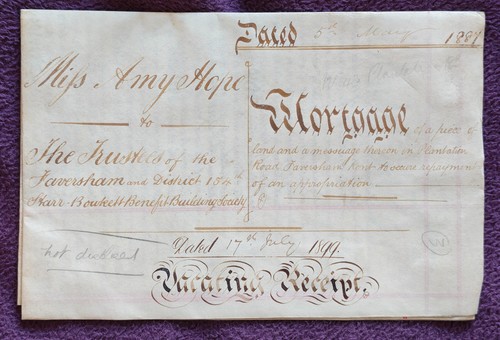 Dated 5th May 1887
Miss Amy Hope
to
The Trustees of the
Faversham and District 154th
Starr-Bowkett Benefit Building Society
Mortgage of a piece of
land and a messuage thereon in Plantation
Road Faversham Kent to secure repayment
of an appropriation
Dated 17th July 1899.
Vacating Receipt.